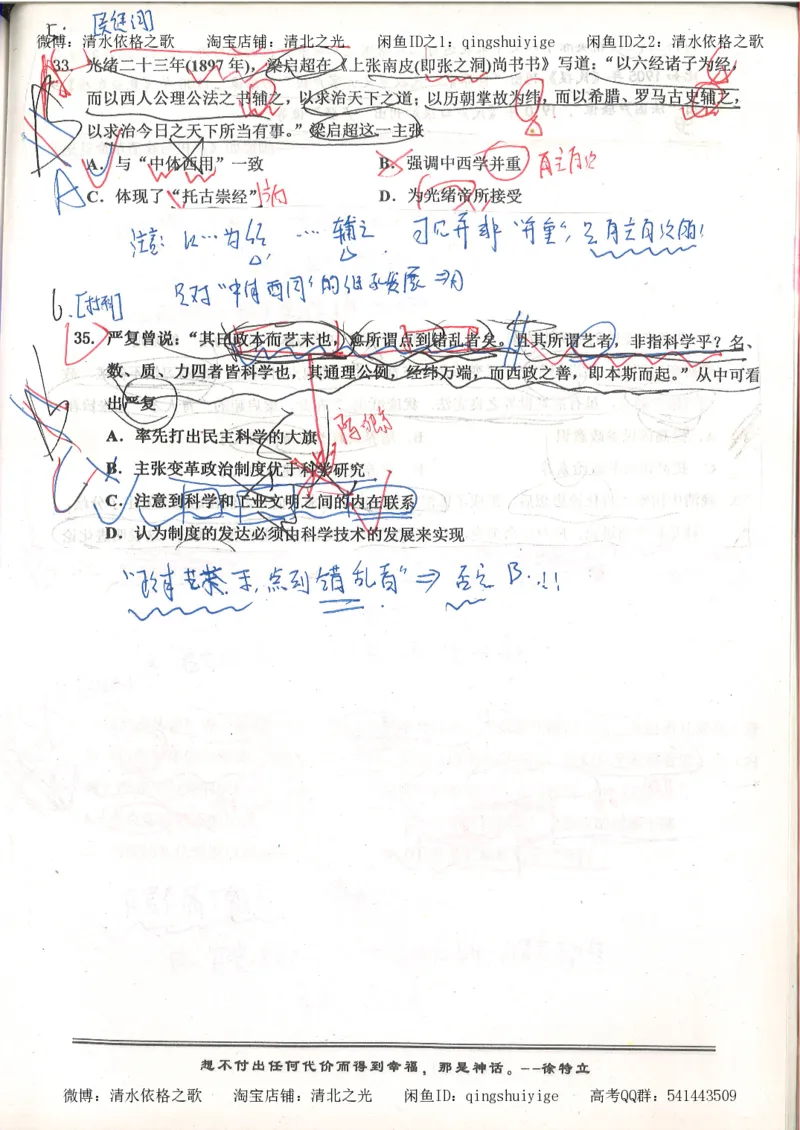 5. [关键词]
微博：清水依格之歌 淘宝店铺：清北之光 闲鱼ID之1：qingshuiyige 闲鱼ID之2：清水依格之歌
33. 光绪二十三年(1897年)，梁启超在《上张南皮(即张之洞)尚书书》写道：“以六经诸子为经，
而以西人公理公法之书辅之，以求治天下之道；以历朝掌故为纬，而以希腊、罗马古史辅之，
以求治今日之天下所当有事。”梁启超这一主张
A．与“中体西用”一致 B．强调中西学并重 有主有次
A C．体现了“托古崇经” D．为光绪帝所接受
注意：以…为经 …辅之 可见并非“并重”，是有主有次的！
是对“中体西用”的继承发展
6.
35. 严复曾说：“其曰政本而艺末也，愈所谓点到错乱者矣。且其所谓艺者，非指科学乎？名、
数、质、力四者皆科学也，其通理公例，经纬万端，而西政之善，即本斯而起。”从中可看
出严复
A．率先打出民主科学的大旗 陈独秀
B．主张变革政治制度优于科学研究
C．注意到科学和工业文明之间的内在联系
D．认为制度的发达必须由科学技术的发展来实现
“政本艺末，点到错乱者”⇒否定B.!!
想不付出任何代价而得到幸福，那是神话。--徐特立
微博：清水依格之歌 淘宝店铺：清北之光 闲鱼ID：qingshuiyige 高考QQ群：541443509